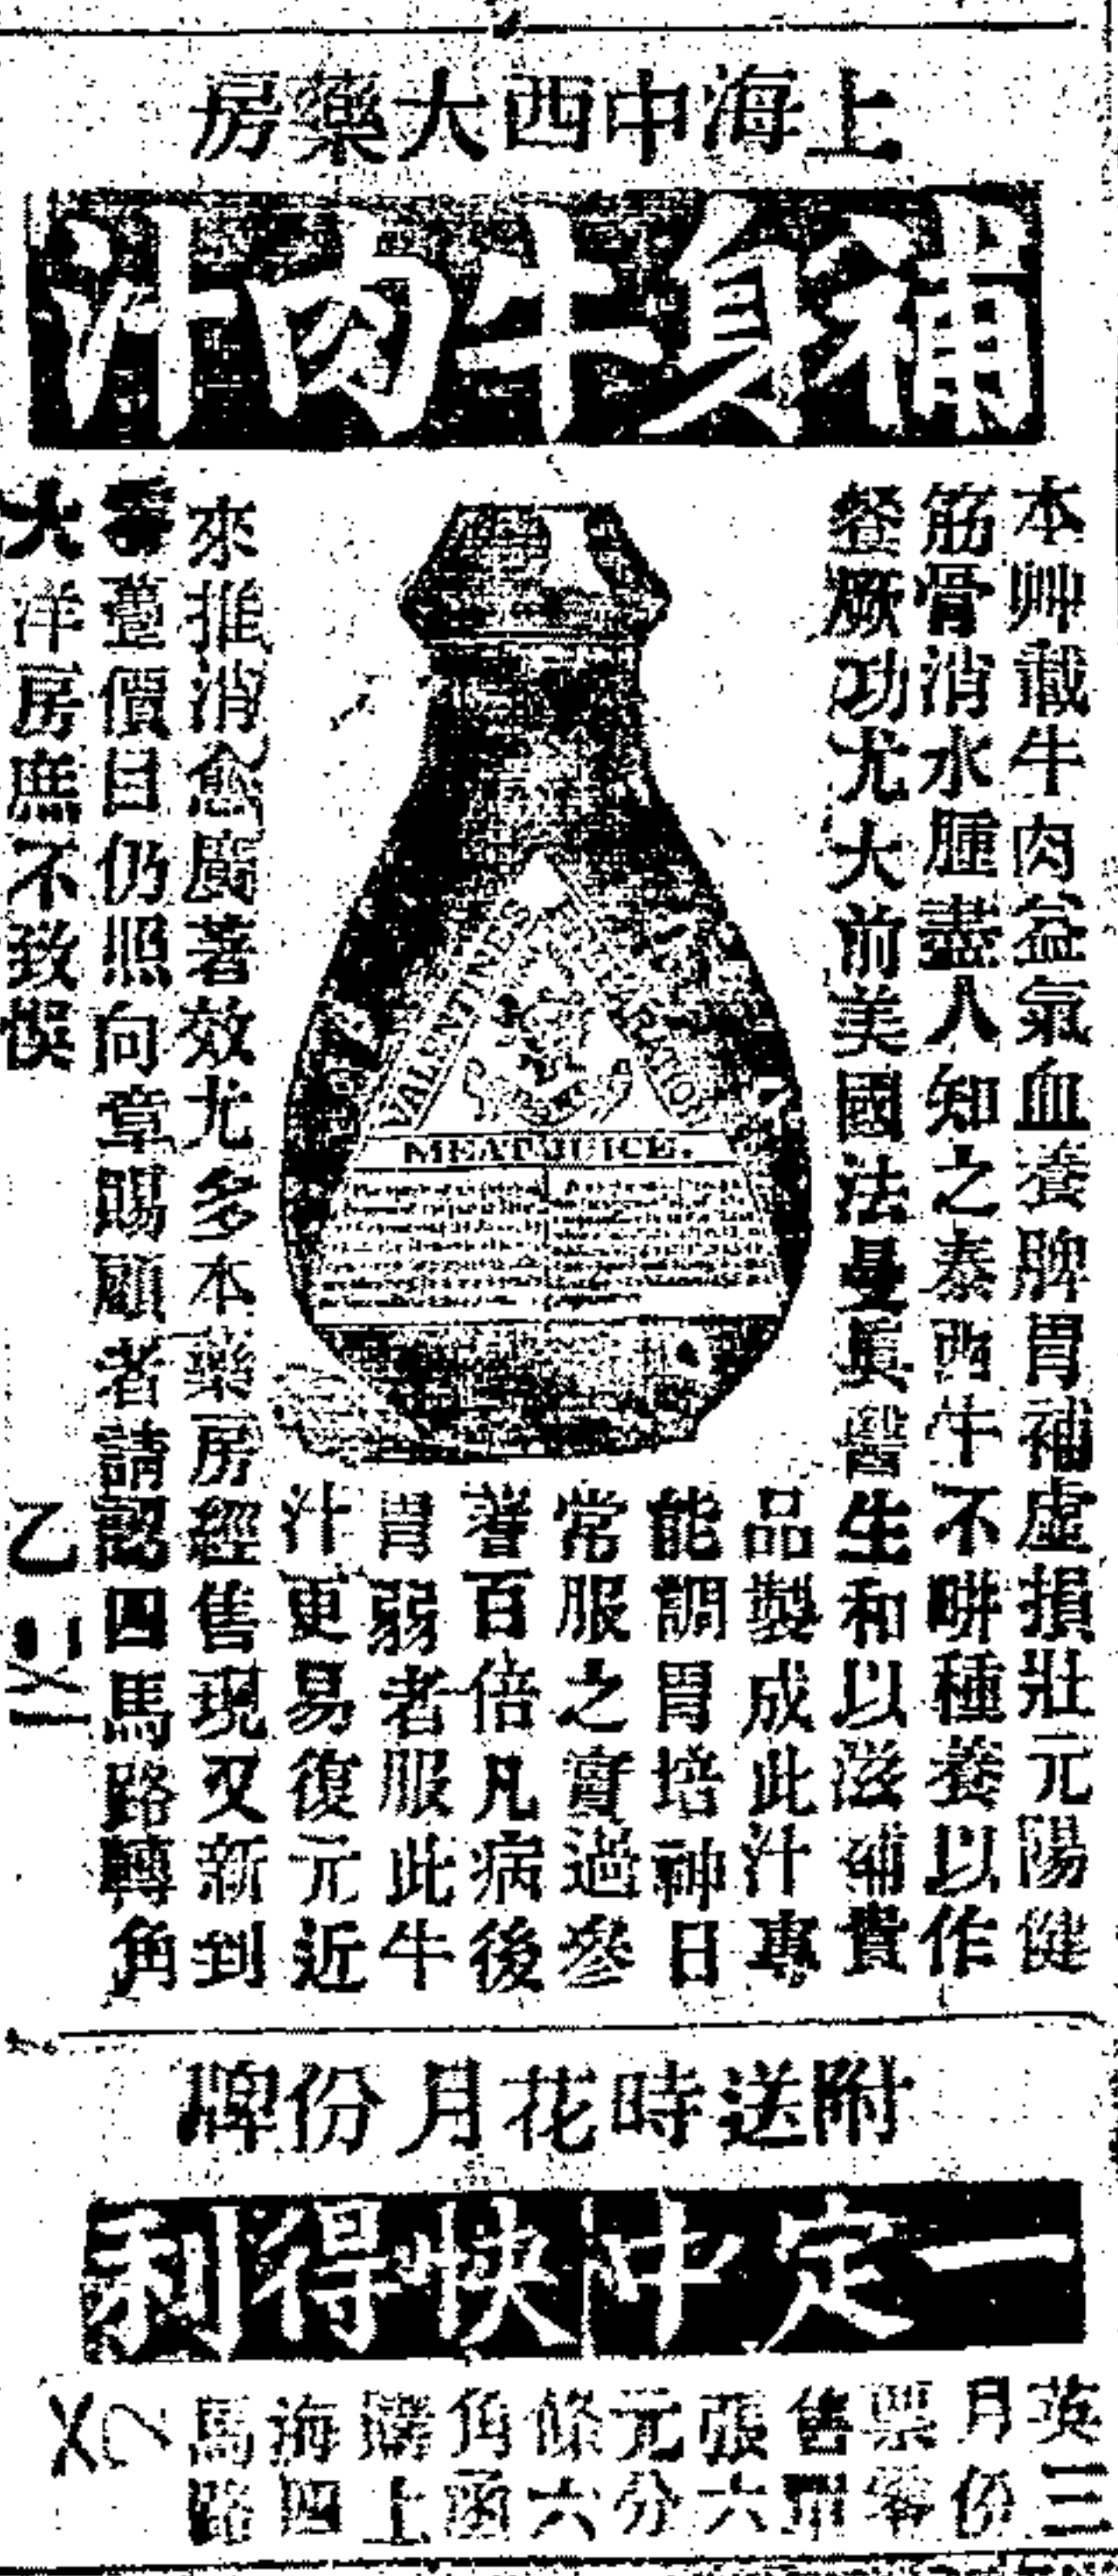 上海中西大藥房
補身牛肉汁
本艸載牛肉益氣血養脾胃補虛損壯元陽健
筋骨消水腫盡人知之泰西牛不畊種養以作
餐厥功尤大前美國法曼眞醫生和以滋補貴
品製成此汁專
能調胃培神日
常服之實過參
蓍百倍凡病後
胃弱者服此牛
汁更易復元近
來推消愈廣著效尤多本藥房經售現又新到
零躉價目仍照向章賜顧者請認四馬路轉角
大洋房庶不致悞
VALENTINE'S PREPARATION
MEAT JUICE.
附送時花月份牌
一定中快得利
英三
月份
票零
售
張六
元分
條六
角函
購上
海四
馬路